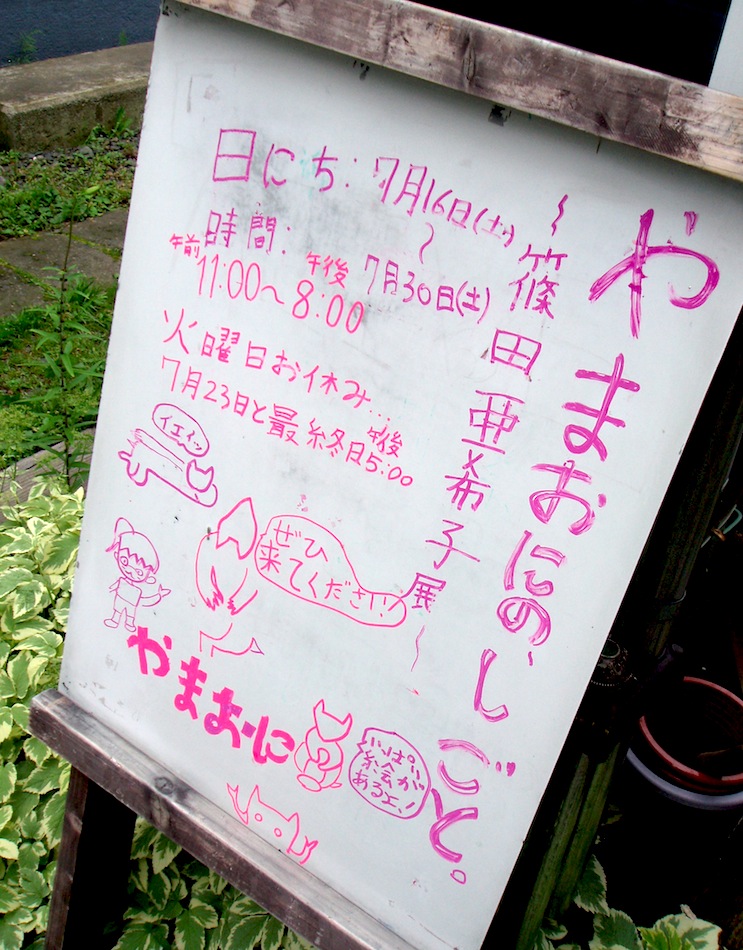 やまおにの、しごと。
〜篠田亜希子展〜
日にち：7月16日(土)
〜
7月30日(土)
時間：
午前11:00〜午後8:00
火曜日お休み…
7月23日と最終日午後5:00
イエイッ
ぜひ
来てください!!
やまおに
いっぱい
絵が
あるよ！